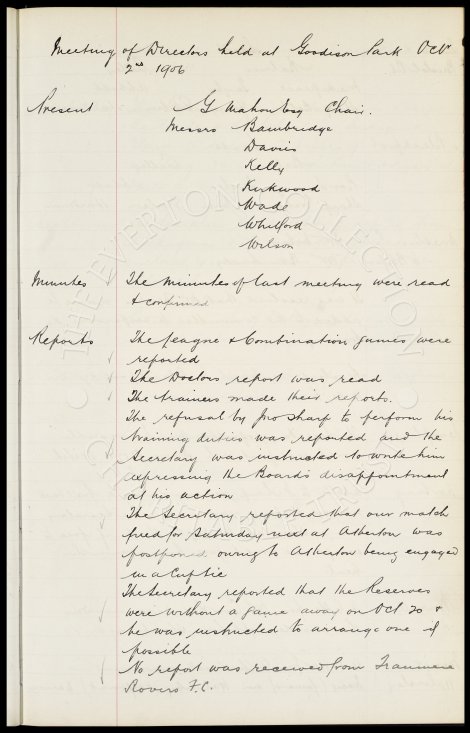 Meeting of Directors held at Goodison Park Octr
2nd 1906
Present G Mahon Esq Chair.
Messrs Bambridge
Davies
Kelly
Kirkwood
Wade
Whitford
Wilson
Minutes The minutes of last meeting were read
& confirmed
Reports The League & Combination games were
reported
The Doctors report was read
The trainers made their reports.
The refusal by Jno Sharp to perform his
training duties was reported and the
Secretary was instructed to write him
expressing the Boards disappointment
at his action
The Secretary reported that our match
fixed for Saturday next at Atherton was
postponed owing to Atherton being engaged
in a Cup tie
The Secretary reported that the Reserves
were without a game away on Oct 20 &
he was instructed to arrange one if
possible
No report was received from Tranmere
Rovers F.C.
THE EVERTON COLLECTION